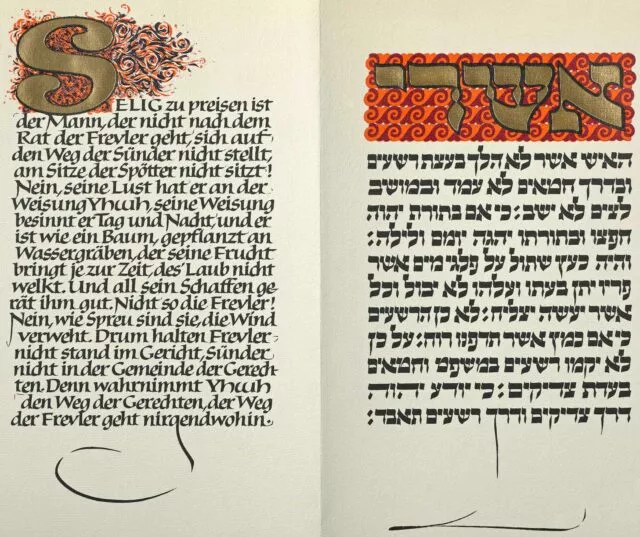 SELIG zu preisen ist
der Mann, der nicht nach dem
Rat der Frevler geht, sich auf
den Weg der Sünder nicht stellt,
am Sitze der Spötter nicht sitzt!
Nein, seine Lust hat er an der
Weisung Yhwh, seine Weisung
besinnt er Tag und Nacht, und er
ist wie ein Baum, gepflanzt an
Wassergräben, der seine Frucht
bringt je zur Zeit, des' Laub nicht
welkt. Und all sein Schaffen ge-
rät ihm gut. Nicht so die Frevler!
Nein, wie Spreu sind sie, die Wind
verweht. Drum halten Frevler
nicht stand im Gericht, Sünder
nicht in der Gemeinde der Gerech-
ten. Denn wahrnimmt Yhwh
den Weg der Gerechten, der Weg
der Frevler geht nirgendwohin.
אשרי
האיש אשר לא הלך בעצת רשעים
ובדרך חטאים לא עמד ובמושב
לצים לא ישב: כי אם בתורת יהוה
חפצו ובתורתו יהגה יומם ולילה:
והיה כעץ שתול על פלגי מים אשר
פריו יתן בעתו ועלהו לא יבול וכל
אשר יעשה יצליח: לא כן הרשעים
כי אם כמץ אשר תדפנו רוח: על כן
לא יקמו רשעים במשפט וחטאים
בעדת צדיקים: כי יודע יהוה
דרך צדיקים ודרך רשעים תאבד: